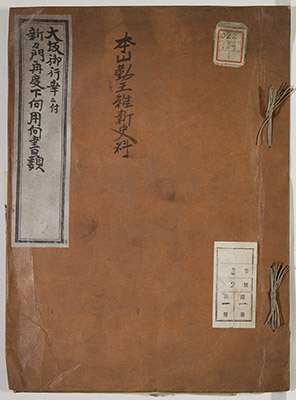 大坂御行幸ニ付
新々門再度下向用向書類
本山勤王維新史料
022
189
1